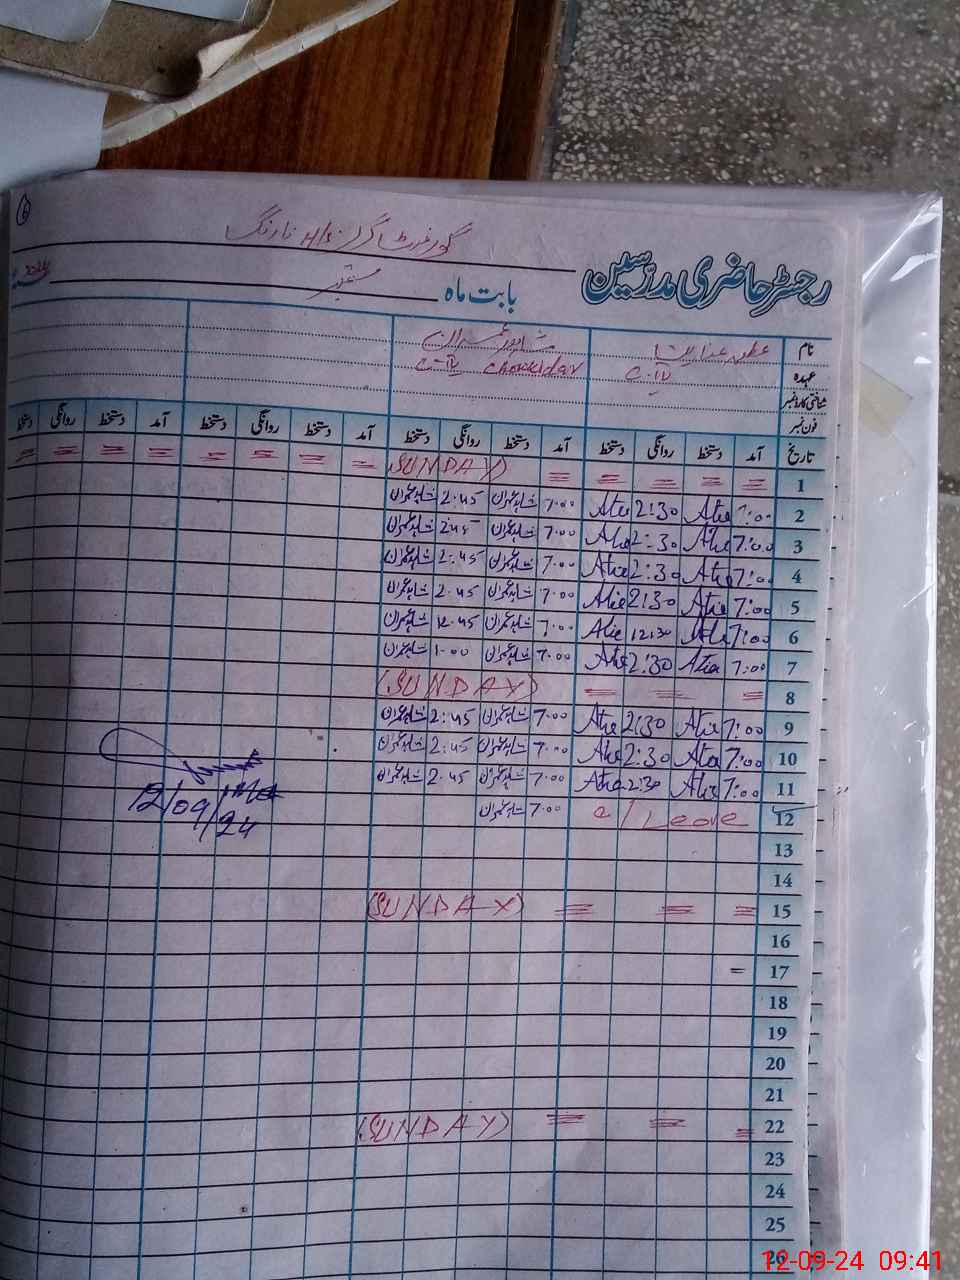 گورنمنٹ گرلز H/S نارنگ
رجسٹر حاضری مدرسین
بابت ماہ ستمبر 2024
نام عطیہ عنایت شاہد عمران
عہدہ C-IV C-IV Chowkidar
شناختی کارڈ نمبر
فون نمبر
تاریخ آمد دستخط روانگی دستخط آمد دستخط روانگی دستخط آمد دستخط روانگی دستخط آمد دستخط روانگی دستخط
1 (SUNDAY)
2 7:00 Atia 2:30 Atia 7:00 شاہد عمران 2:45 شاہد عمران
3 7:00 Atia 2:30 Atia 7:00 شاہد عمران 2:45 شاہد عمران
4 7:00 Atia 2:30 Atia 7:00 شاہد عمران 2:45 شاہد عمران
5 7:00 Atia 2:30 Atia 7:00 شاہد عمران 2:45 شاہد عمران
6 7:00 Atia 12:30 Atia 7:00 شاہد عمران 12:45 شاہد عمران
7 7:00 Atia 2:30 Atia 7:00 شاہد عمران 1:00 شاہد عمران
8 (SUNDAY)
9 7:00 Atia 2:30 Atia 7:00 شاہد عمران 2:45 شاہد عمران
10 7:00 Atia 2:30 Atia 7:00 شاہد عمران 2:45 شاہد عمران
11 7:00 Atia 2:30 Atia 7:00 شاہد عمران 2:45 شاہد عمران
12 c/Leave 7:00 شاہد عمران
12/09/24
13
14
15 (SUNDAY)
16
17
18
19
20
21
22 (SUNDAY)
23
24
25
26
12-09-24 09:41